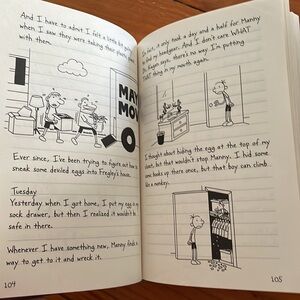 And I have to admit I felt a little bit
when I saw they were taking their
with them.
MA
MO
O
Ever since, I've been trying to figure out how
sneak some deviled eggs into Fregley's house.
Tuesday
Yesterday when I got home, I put my egg in my
sock drawer, but then I realized it wouldn't be
safe in there.
Whenever I have something new, Manny finds a
way to get to it and wreck it.
104
In fact, it only took a day and a half for Manny
to find my headgear. And I don't care WHAT
Dr. Kagan says, there's no way I'm putting
THAT thing in my mouth again.
I thought about hiding the egg at the top of my
closet, but that wouldn't stop Manny. I hid some
comic books up there once, but that boy can climb
like a monkey.
105